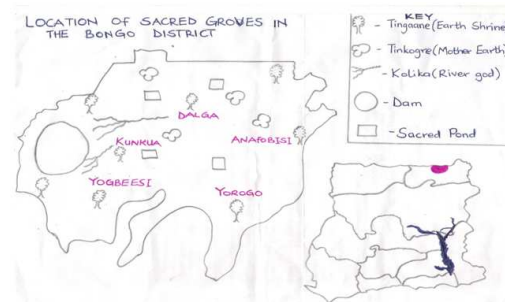 LOCATION OF SACRED GROVES IN
THE BONGO DISTRICT
KEY
- Tingaane (Earth Shrine
- Tinkogre (Mother Earth)
- Kolika (River god)
- Dam
- Sacred Pond
DALGA
KUNKUA
ANAFOBISI
YOGBEESI
YOROGO